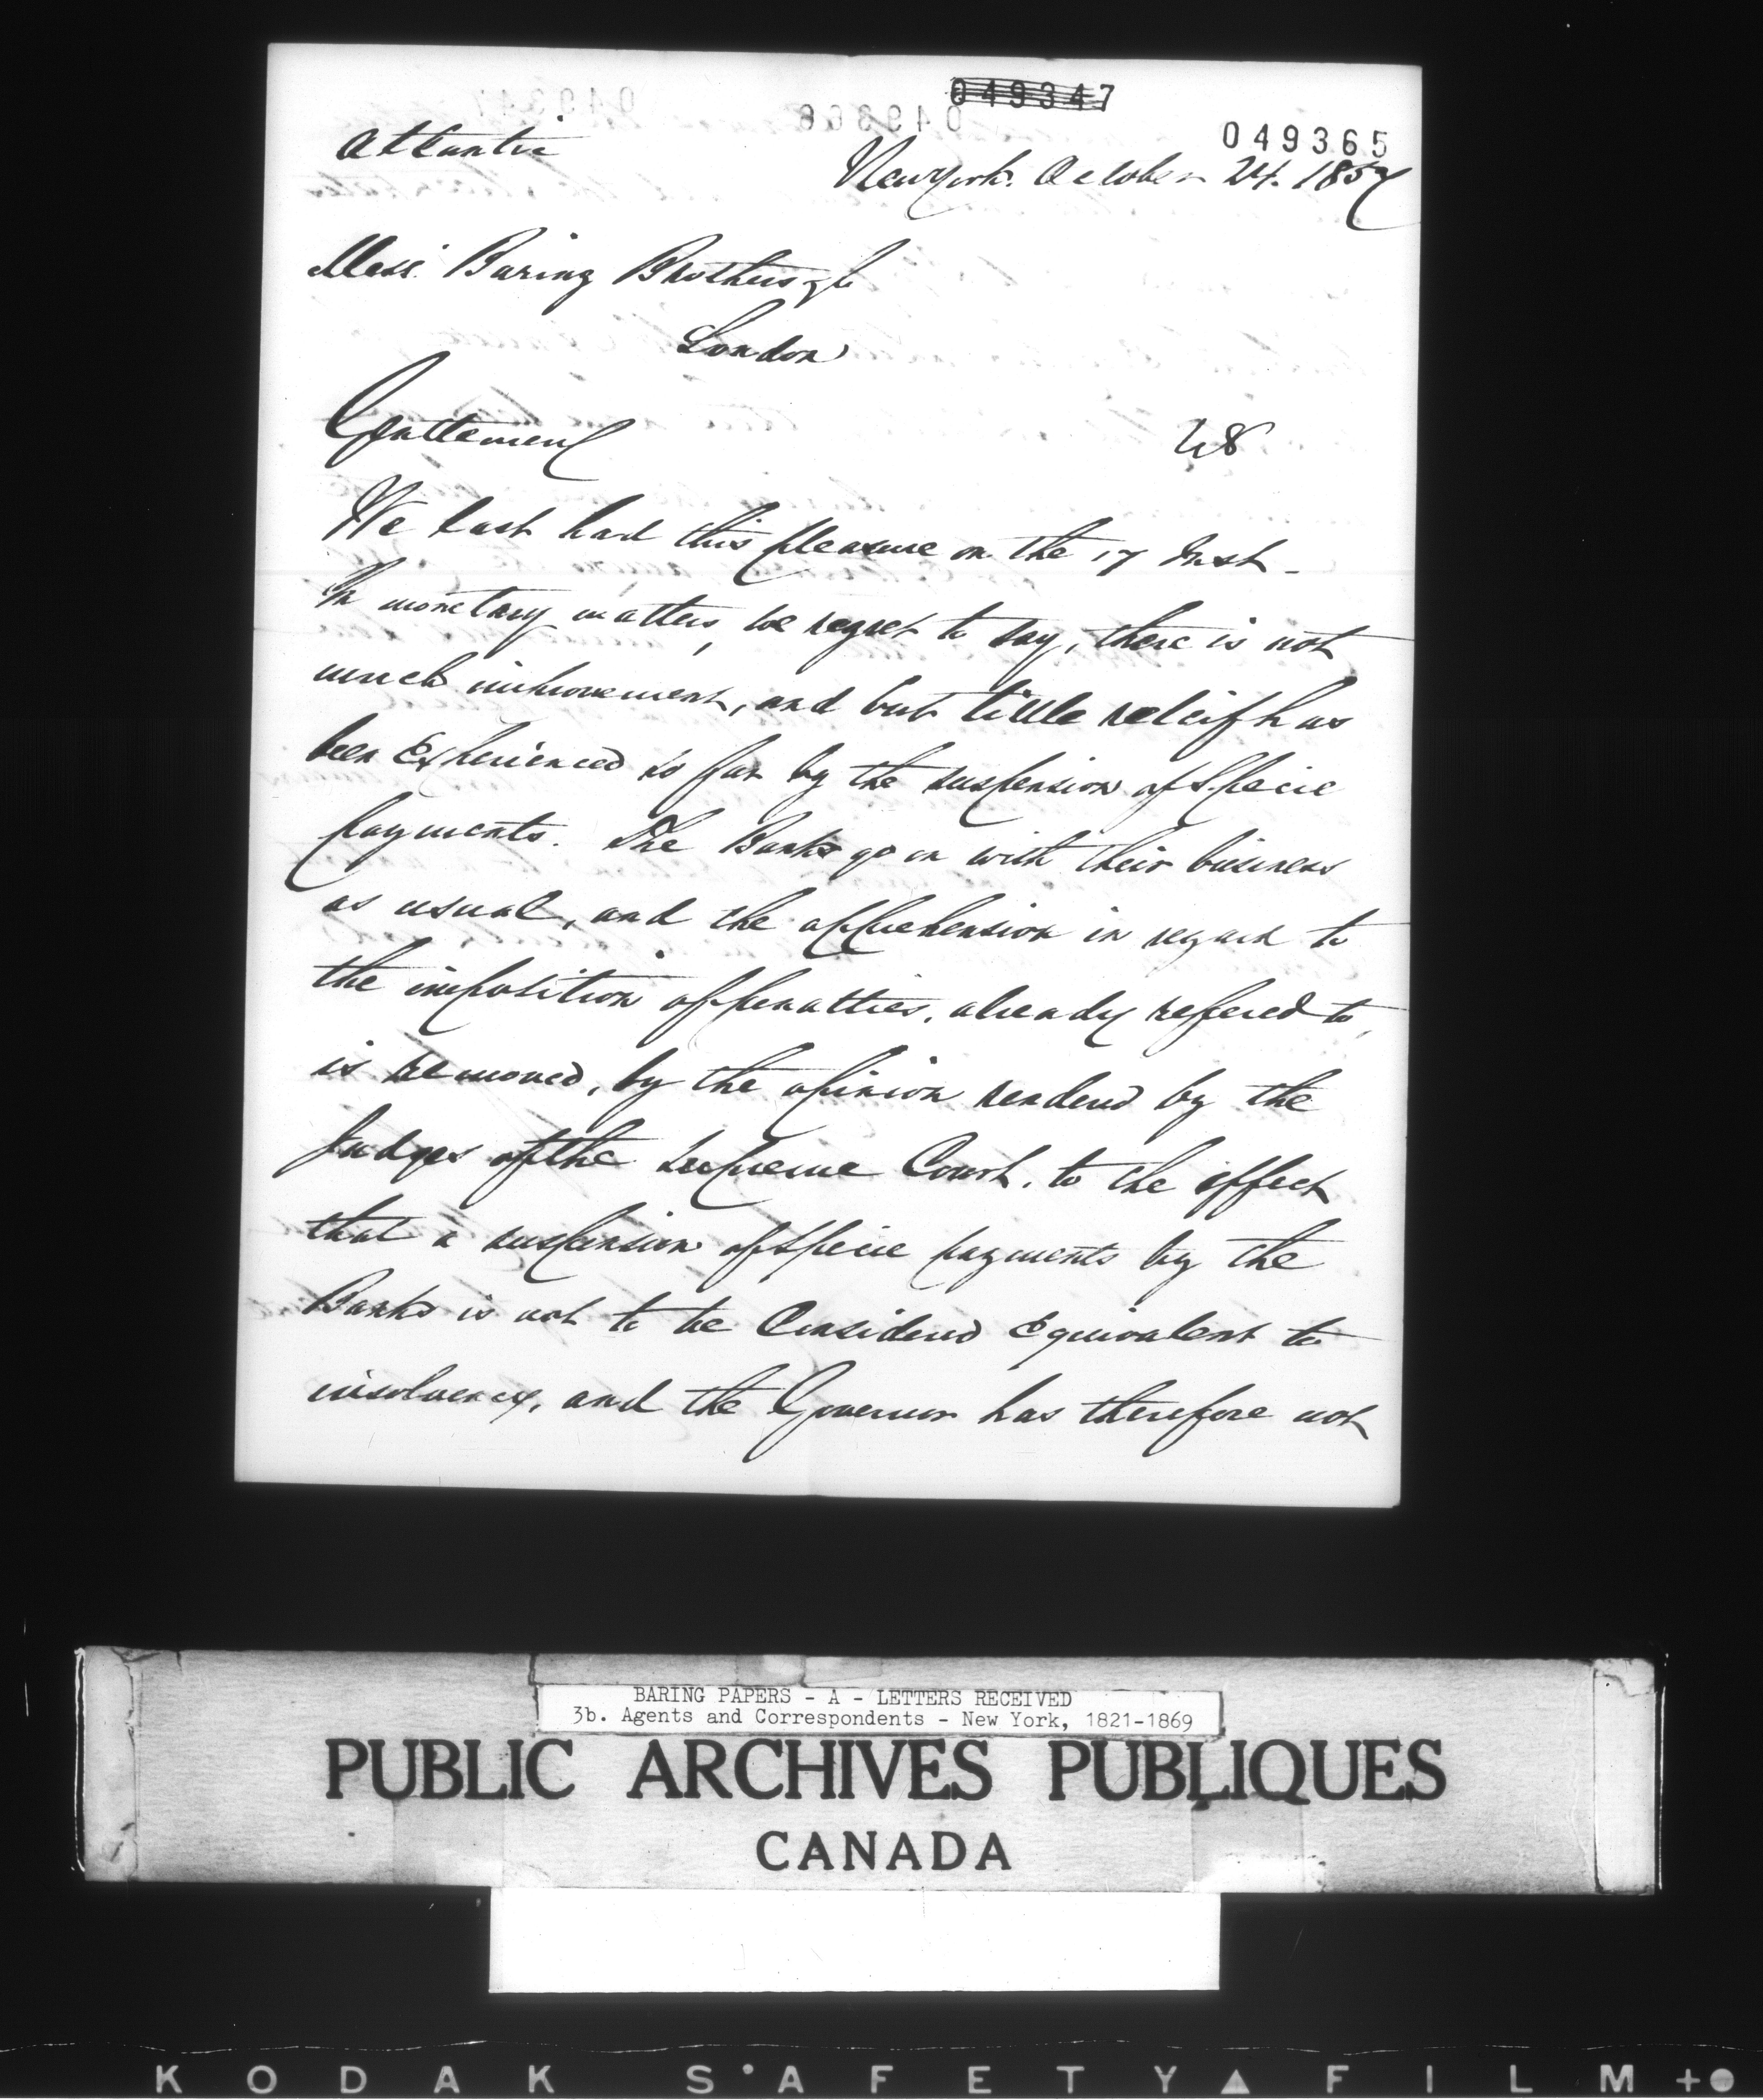 049347
049365
Atlantic
New York. October 24. 1857
Mess: Baring Brothers & Co
London
Gentlemen
48
We last had this pleasure on the 17 Inst -
In monetary matters, we regret to say, there is not
much improvement, and but little releif has
been Experienced so far by the suspension of Specie
payments. The Banks go on with their business
as usual, and the apprehension in regard to
the imposition of penalties, already refered to,
is removed, by the opinion rendered by the
Judges of the Supreme Court, to the effect
that a suspension of specie payments by the
Banks is not to be Considered Equivalent to
insolvency, and the Governor has therefore not
BARING PAPERS - A - LETTERS RECEIVED
3b. Agents and Correspondents - New York, 1821-1869
PUBLIC ARCHIVES PUBLIQUES
CANADA
KODAK SAFETY FILM